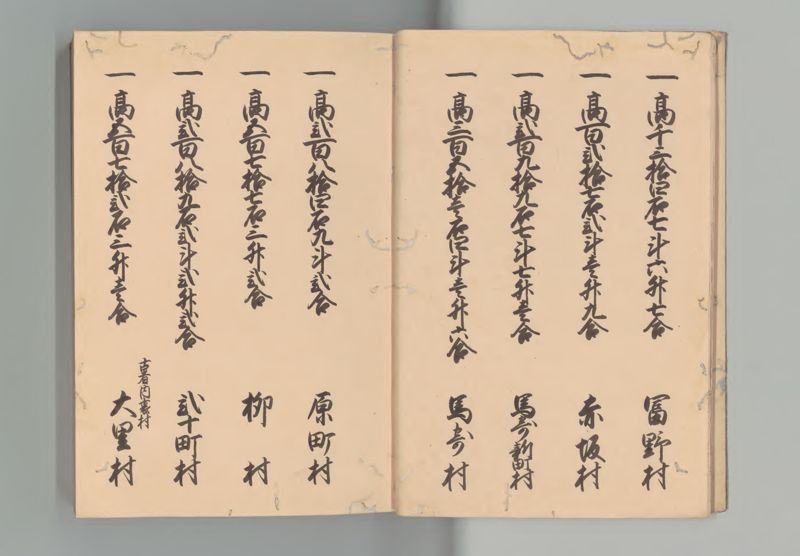 一高千三拾四石七斗六升七合 冨野村
一高百弐拾石弐斗壱升九合 赤坂村
一高弐百九拾九石七斗七升壱合 馬寄新町村
一高三百五拾壱石四斗壱升六合 馬寄村
一高弐百八拾四石九斗弐合 原町村
一高五百七拾七石三升弐合 柳村
一高弐百八拾九石弐斗弐升弐合 弐十町村
一高五百七拾弐石三升壱合 大里村
古者内裏村